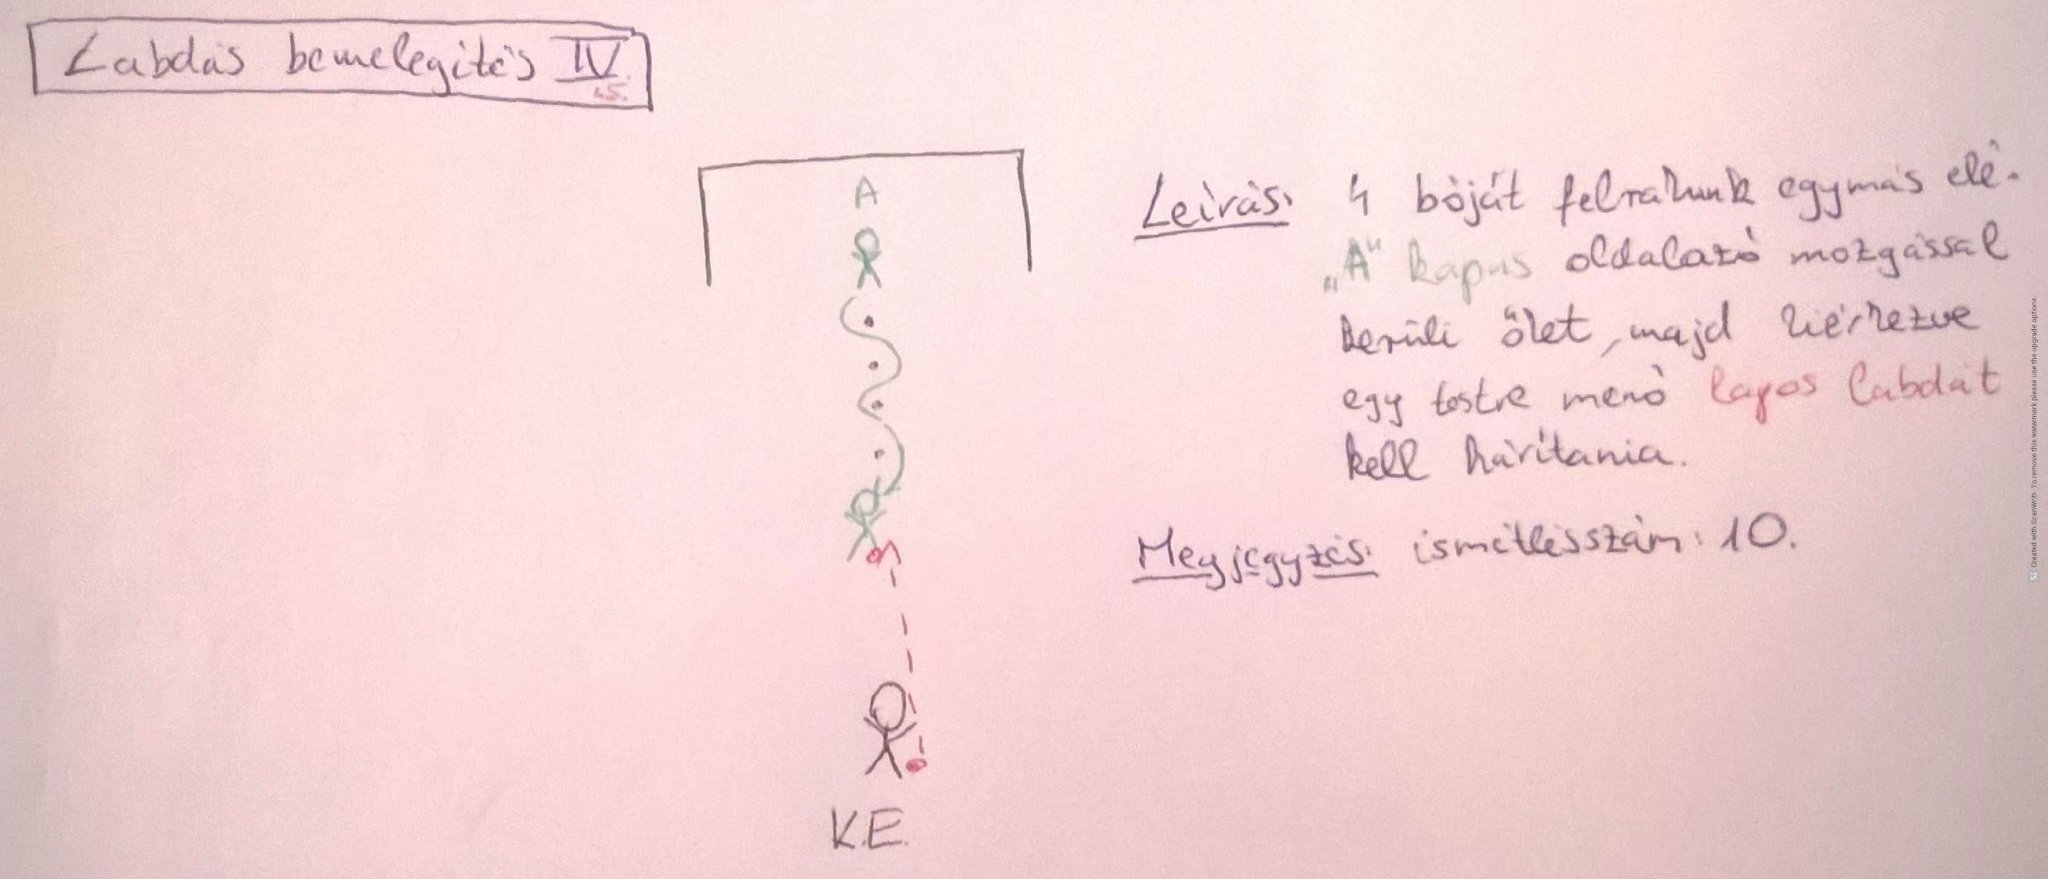 Labdás bemelegítés IV.
45.
A
Leírás: 4 bóját felrakunk egymás elé.
„A" kapus oldalazó mozgással
kerüli őket, majd kiérkezve
egy testre menő lapos labdát
kell hárítania.
Megjegyzés: ismétlésszám: 10.
K.E.
Created with ScanWritr. To remove this watermark please use the upgrade options.